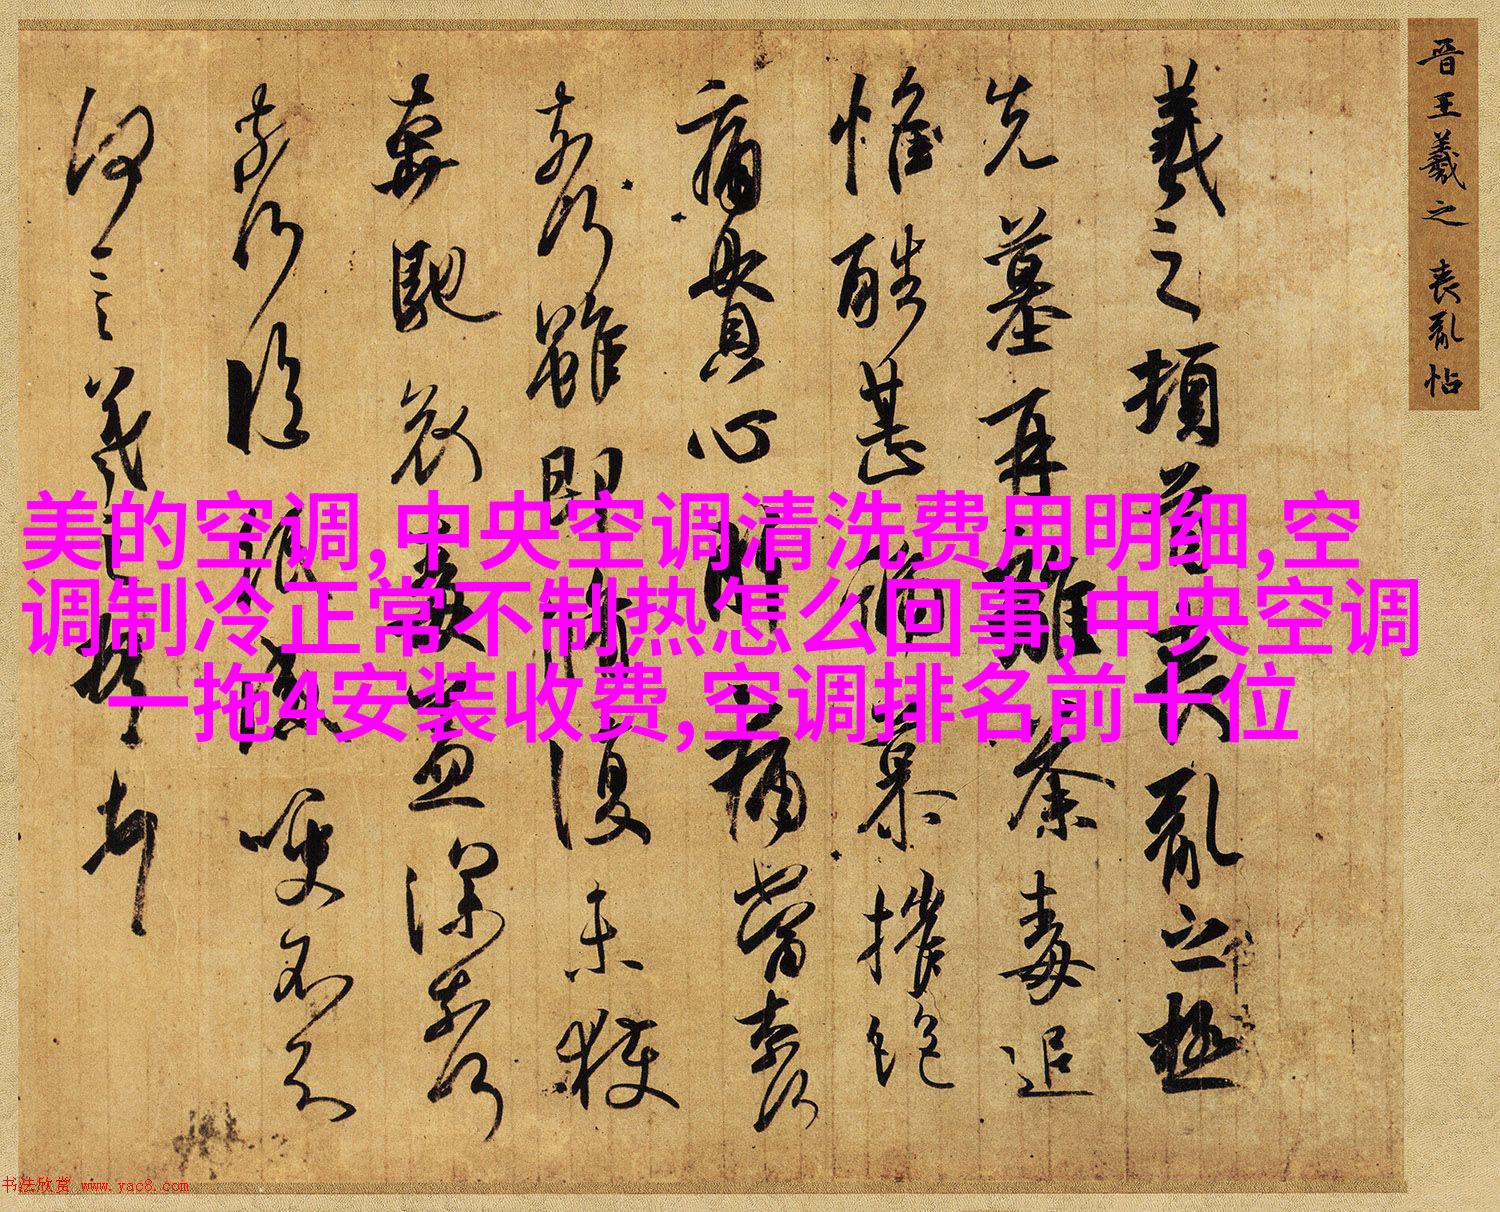 晋王羲之 丧亂帖
羲之頓首喪亂之極
先墓再離荼毒追
惟酷甚號慕摧絕
痛貫心肝痛當奈何
奈何雖即脩復未獲
奔馳哀毒益深奈何
奈何臨紙感哽不知
何言羲之頓首頓首
美的空调,中央空调清洗费用明细,空
调制冷正常不制热怎么回事,中央空调
一拖4安装收费,空调排名前十位
书法欣赏 www.yac8.com